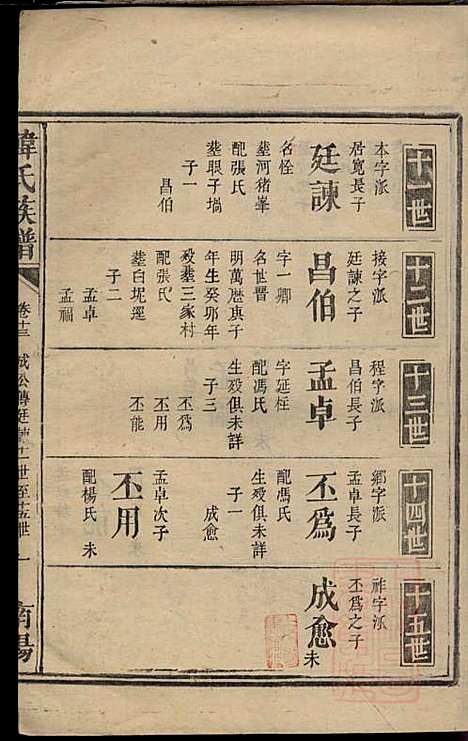 十一世
本字派
居寬長子
廷諫
名恮
塟河猪峯
配張氏
塟眼子塥
子一
昌伯
十二世
接字派
廷諫之子
昌伯
字一卿
名世晋
明萬曆庚子
年生癸邜年
殁塟三家村
配張氏
塟白坭逕
子二
孟卓
孟福
十三世
程字派
昌伯長子
孟卓
字延枉
配馮氏
生殁俱未詳
子三
丕爲
丕用
丕能
十四世
鄉字派
孟卓長子
丕爲
配馮氏
生殁俱未詳
子一
成愈
丕用
孟卓次子
配楊氏 未
十五世
祚字派
丕爲之子
成愈
未
韓氏族譜
卷十三
一
南陽